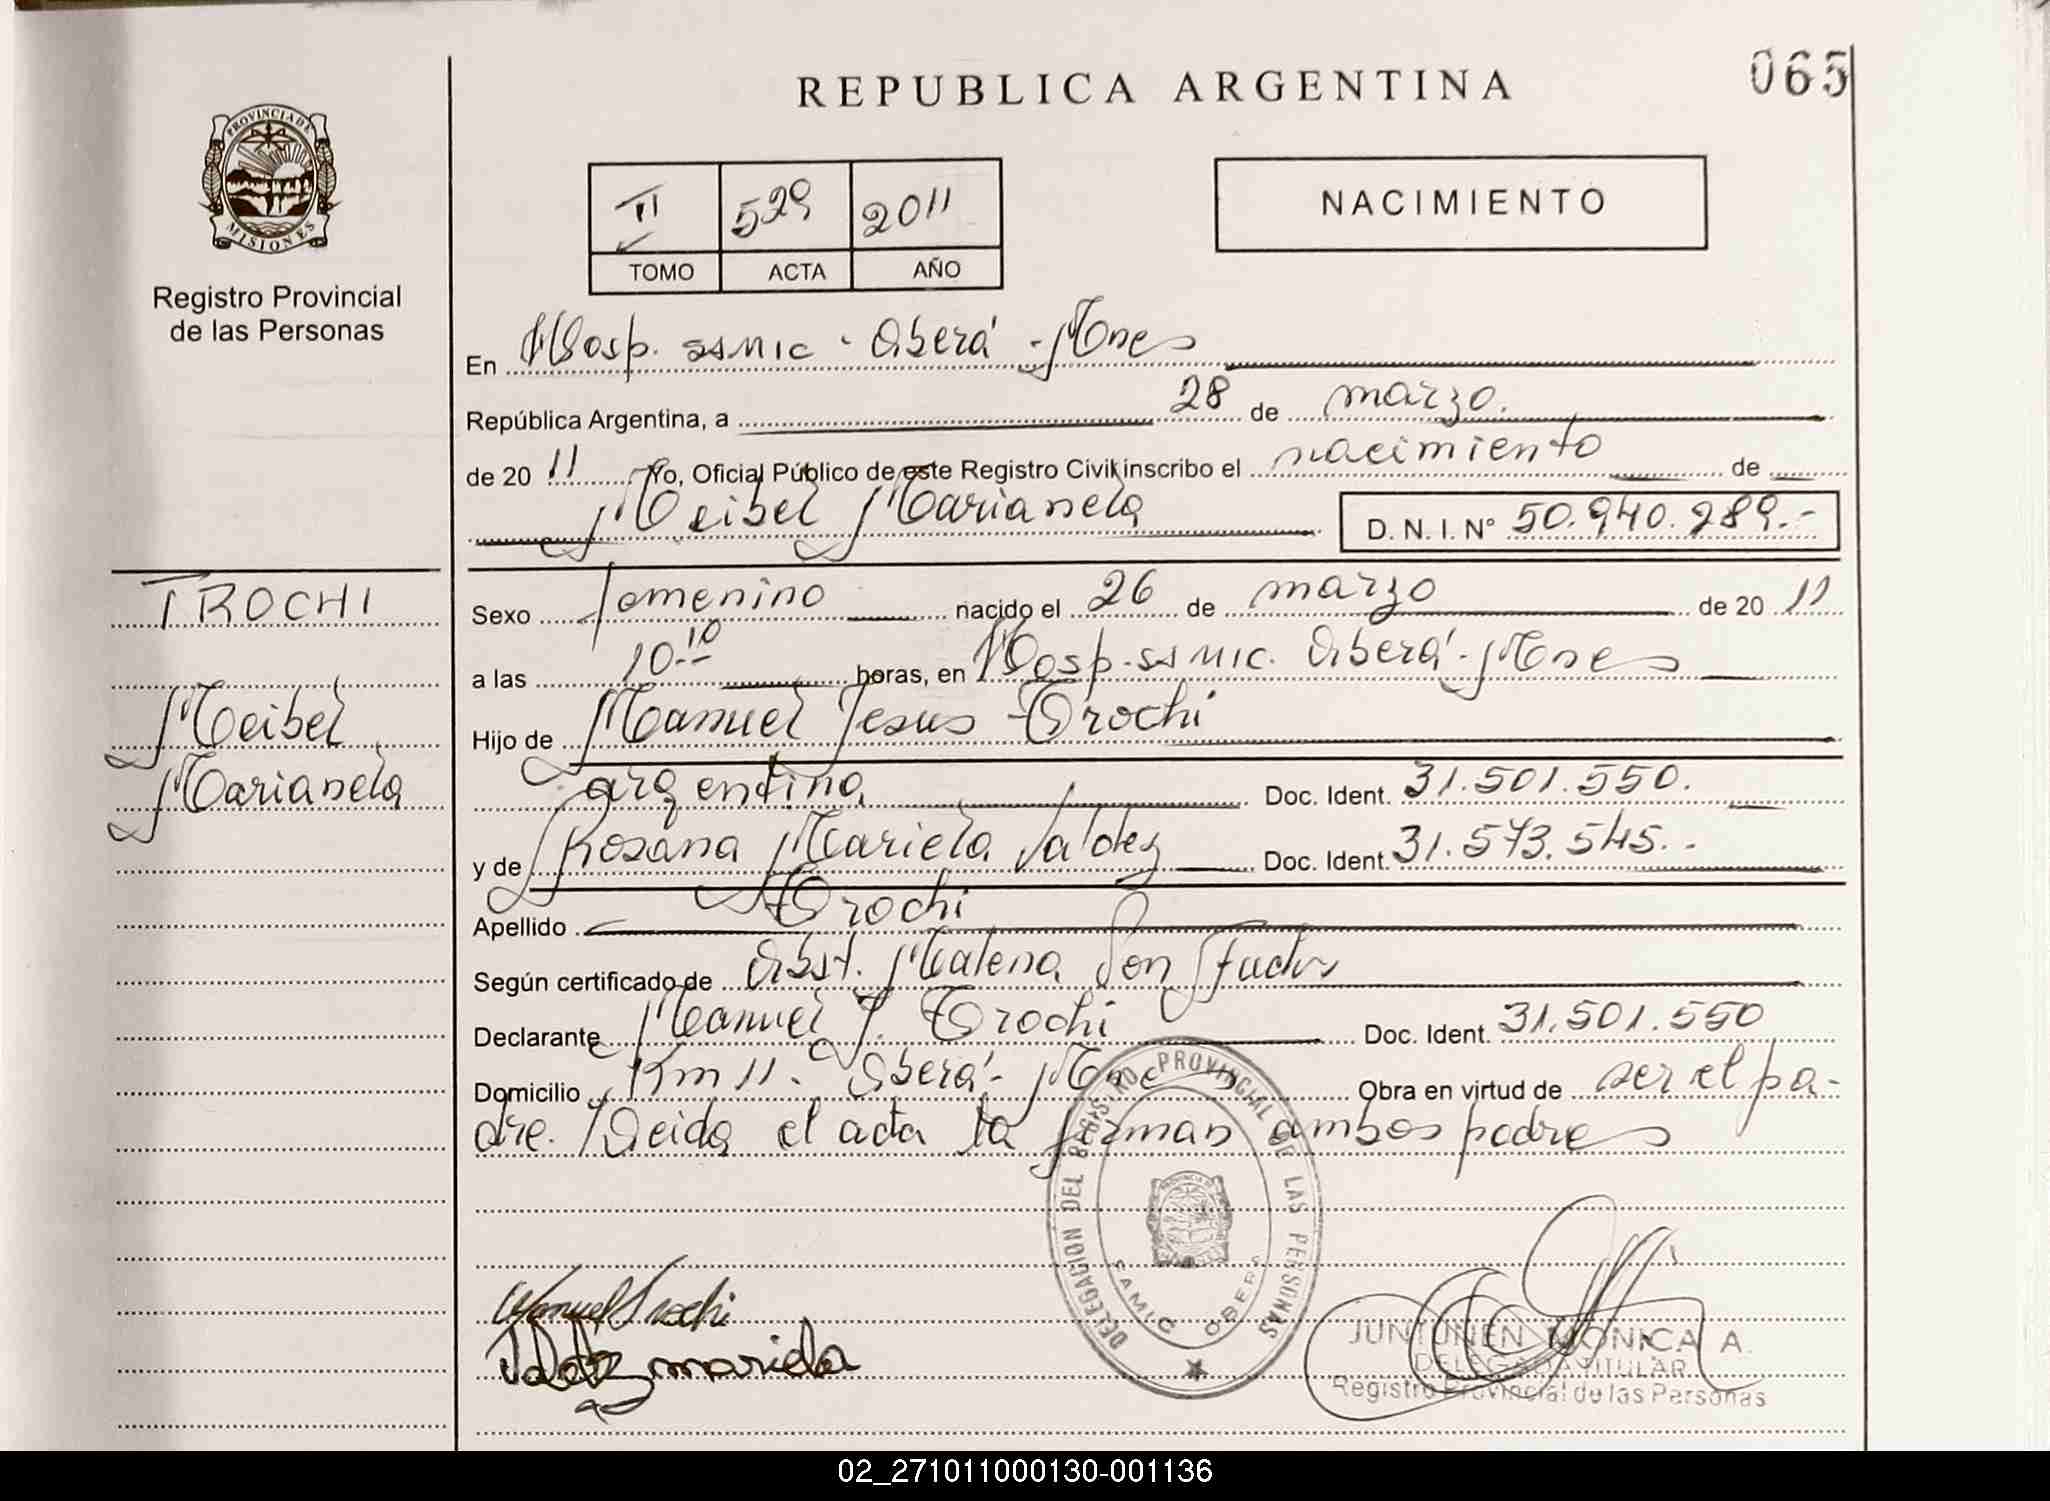 REPUBLICA ARGENTINA
065
PROVINCIA DE
MISIONES
Registro Provincial
de las Personas
II 529 2011
TOMO ACTA AÑO
NACIMIENTO
En Hosp. ssmic - Oberá - Mnes
República Argentina, a 28 de marzo.
de 20 11 Yo, Oficial Público de este Registro Civil inscribo el nacimiento de
Meibel Marianela D. N. I. N° 50.940.289.-
TROCHI
Meibel
Marianela
Sexo femenino nacido el 26 de marzo de 20 11
a las 10.10 horas, en Hosp. ssmic. Oberá - Mnes
Hijo de Manuel Jesus Trochi
argentina Doc. Ident. 31.501.550.
y de Rosana Mariela Valdez Doc. Ident. 31.573.545.-
Apellido Trochi
Según certificado de Obst. Malena
Declarante Manuel J. Trochi Doc. Ident. 31.501.550
Domicilio Km 11. Oberá - Mnes Obra en virtud de ser el pa-
dre. Leida el acta la firman ambos padres
DELEGACION DEL REGISTRO PROVINCIAL DE LAS PERSONAS
SAMIC OBERA
Manuel Trochi
Valdez mariela
JUNTUNEN MONICA A.
DELEGADA TITULAR
Registro Provincial de las Personas
02_271011000130-001136